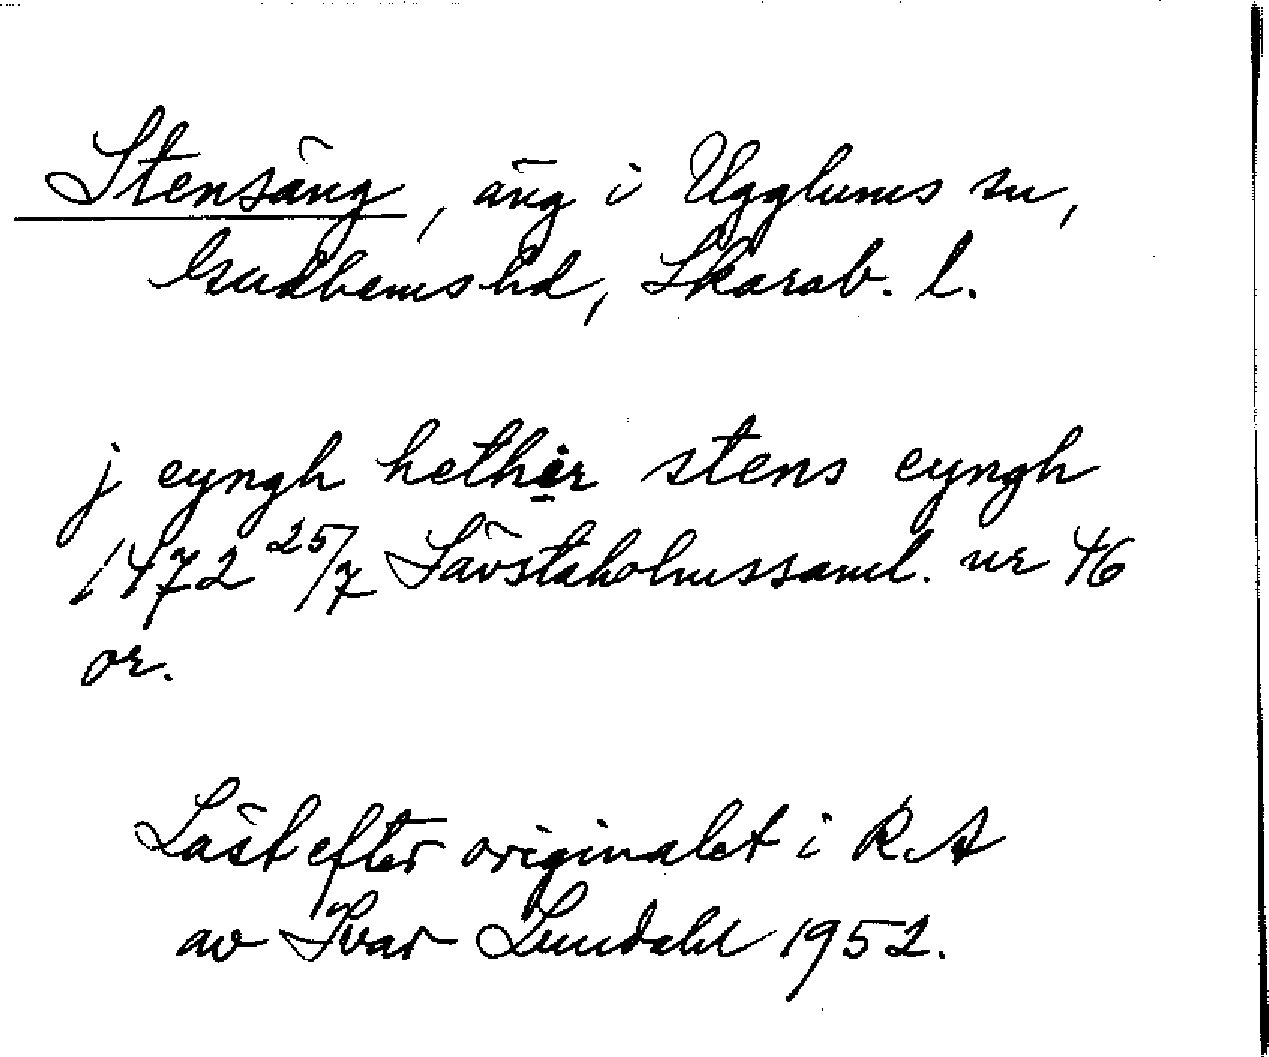 Stensäng, äng i Ugglums sn,
Gudhems hd, Skarab. l.
j eyngh hether stens eyngh
1472 25/7 Sävstaholmssaml. nr 46
or.
Läst efter originalet i RA
av Ivar Lundahl 1952.